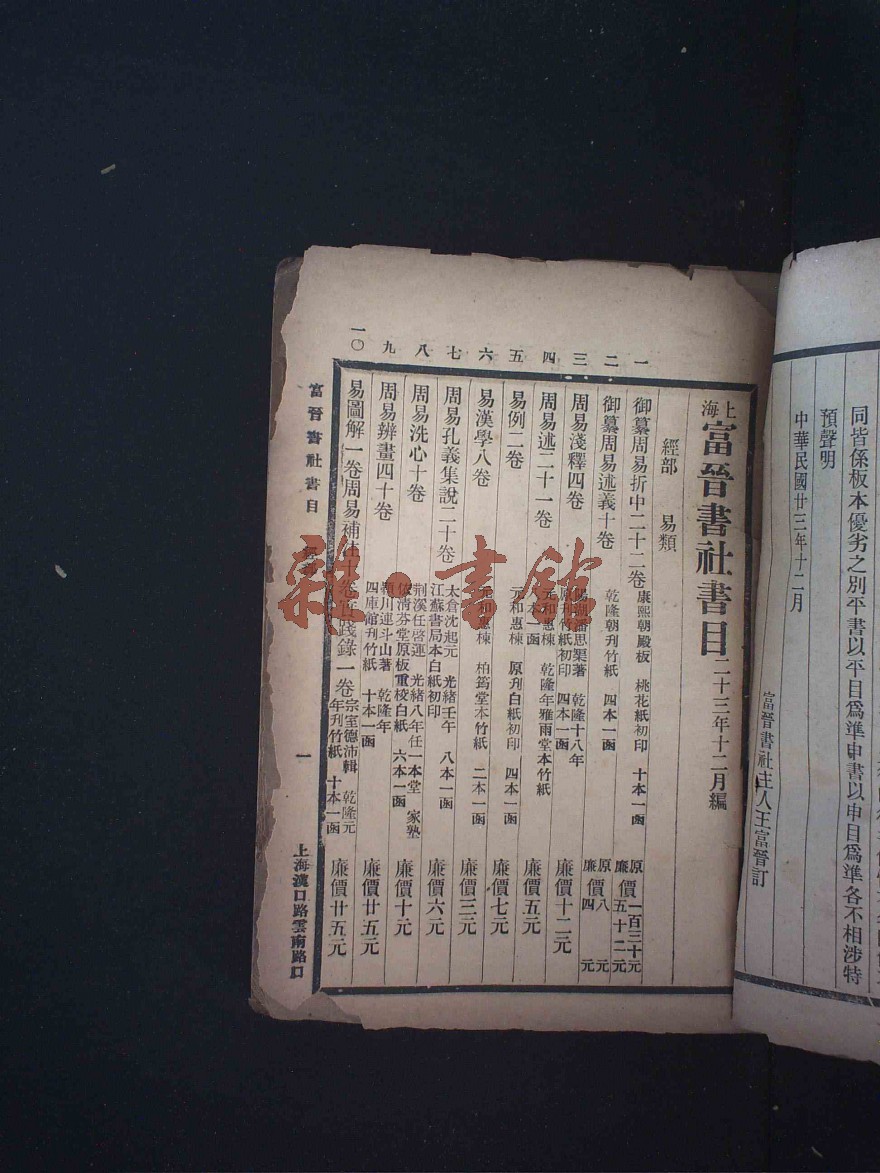 同皆係板本優劣之別平書以平目爲準申書以申目爲準各不相涉特
預聲明
中華民國廿三年十二月
富晉書社主人王富晉訂
上海富晉書社書目二十三年十二月編
經部 易類
一 御纂周易折中二十二卷 康熙朝殿板 桃花紙初印 十本一函 原價一百三十元 廉價五十二元
二 御纂周易述義十卷 乾隆朝刋竹紙 四本一函 原價八元 廉價四元
三 周易淺釋四卷 潘思榘著 乾隆十八年 原刋竹紙初印 四本一函 廉價十二元
四 周易述二十一卷 元和惠棟 乾隆年雅雨堂本竹紙 八本一函 廉價五元
五 易例二卷 元和惠棟 原刋白紙初印 四本一函 廉價七元
六 易漢學八卷 元和惠棟 柏筠堂本竹紙 二本一函 廉價三元
七 周易孔義集說二十卷 太倉沈起元 光緒壬午 江蘇書局本白紙初印 八本一函 廉價六元
八 周易洗心十卷 荆溪任啓運 光緒八年任一本堂 家塾依清芬堂原板重校白紙 六本一函 廉價十元
九 周易辨畫四十卷 潁川連斗山著 乾隆年四庫館刋竹紙 十本一函 廉價廿五元
一〇 易圖解一卷周易補註十卷實踐錄一卷 宗室德沛輯 乾隆元年刋竹紙 十本一函 廉價廿五元
富晉書社書目 一 上海漢口路雲南路口
雜·書館